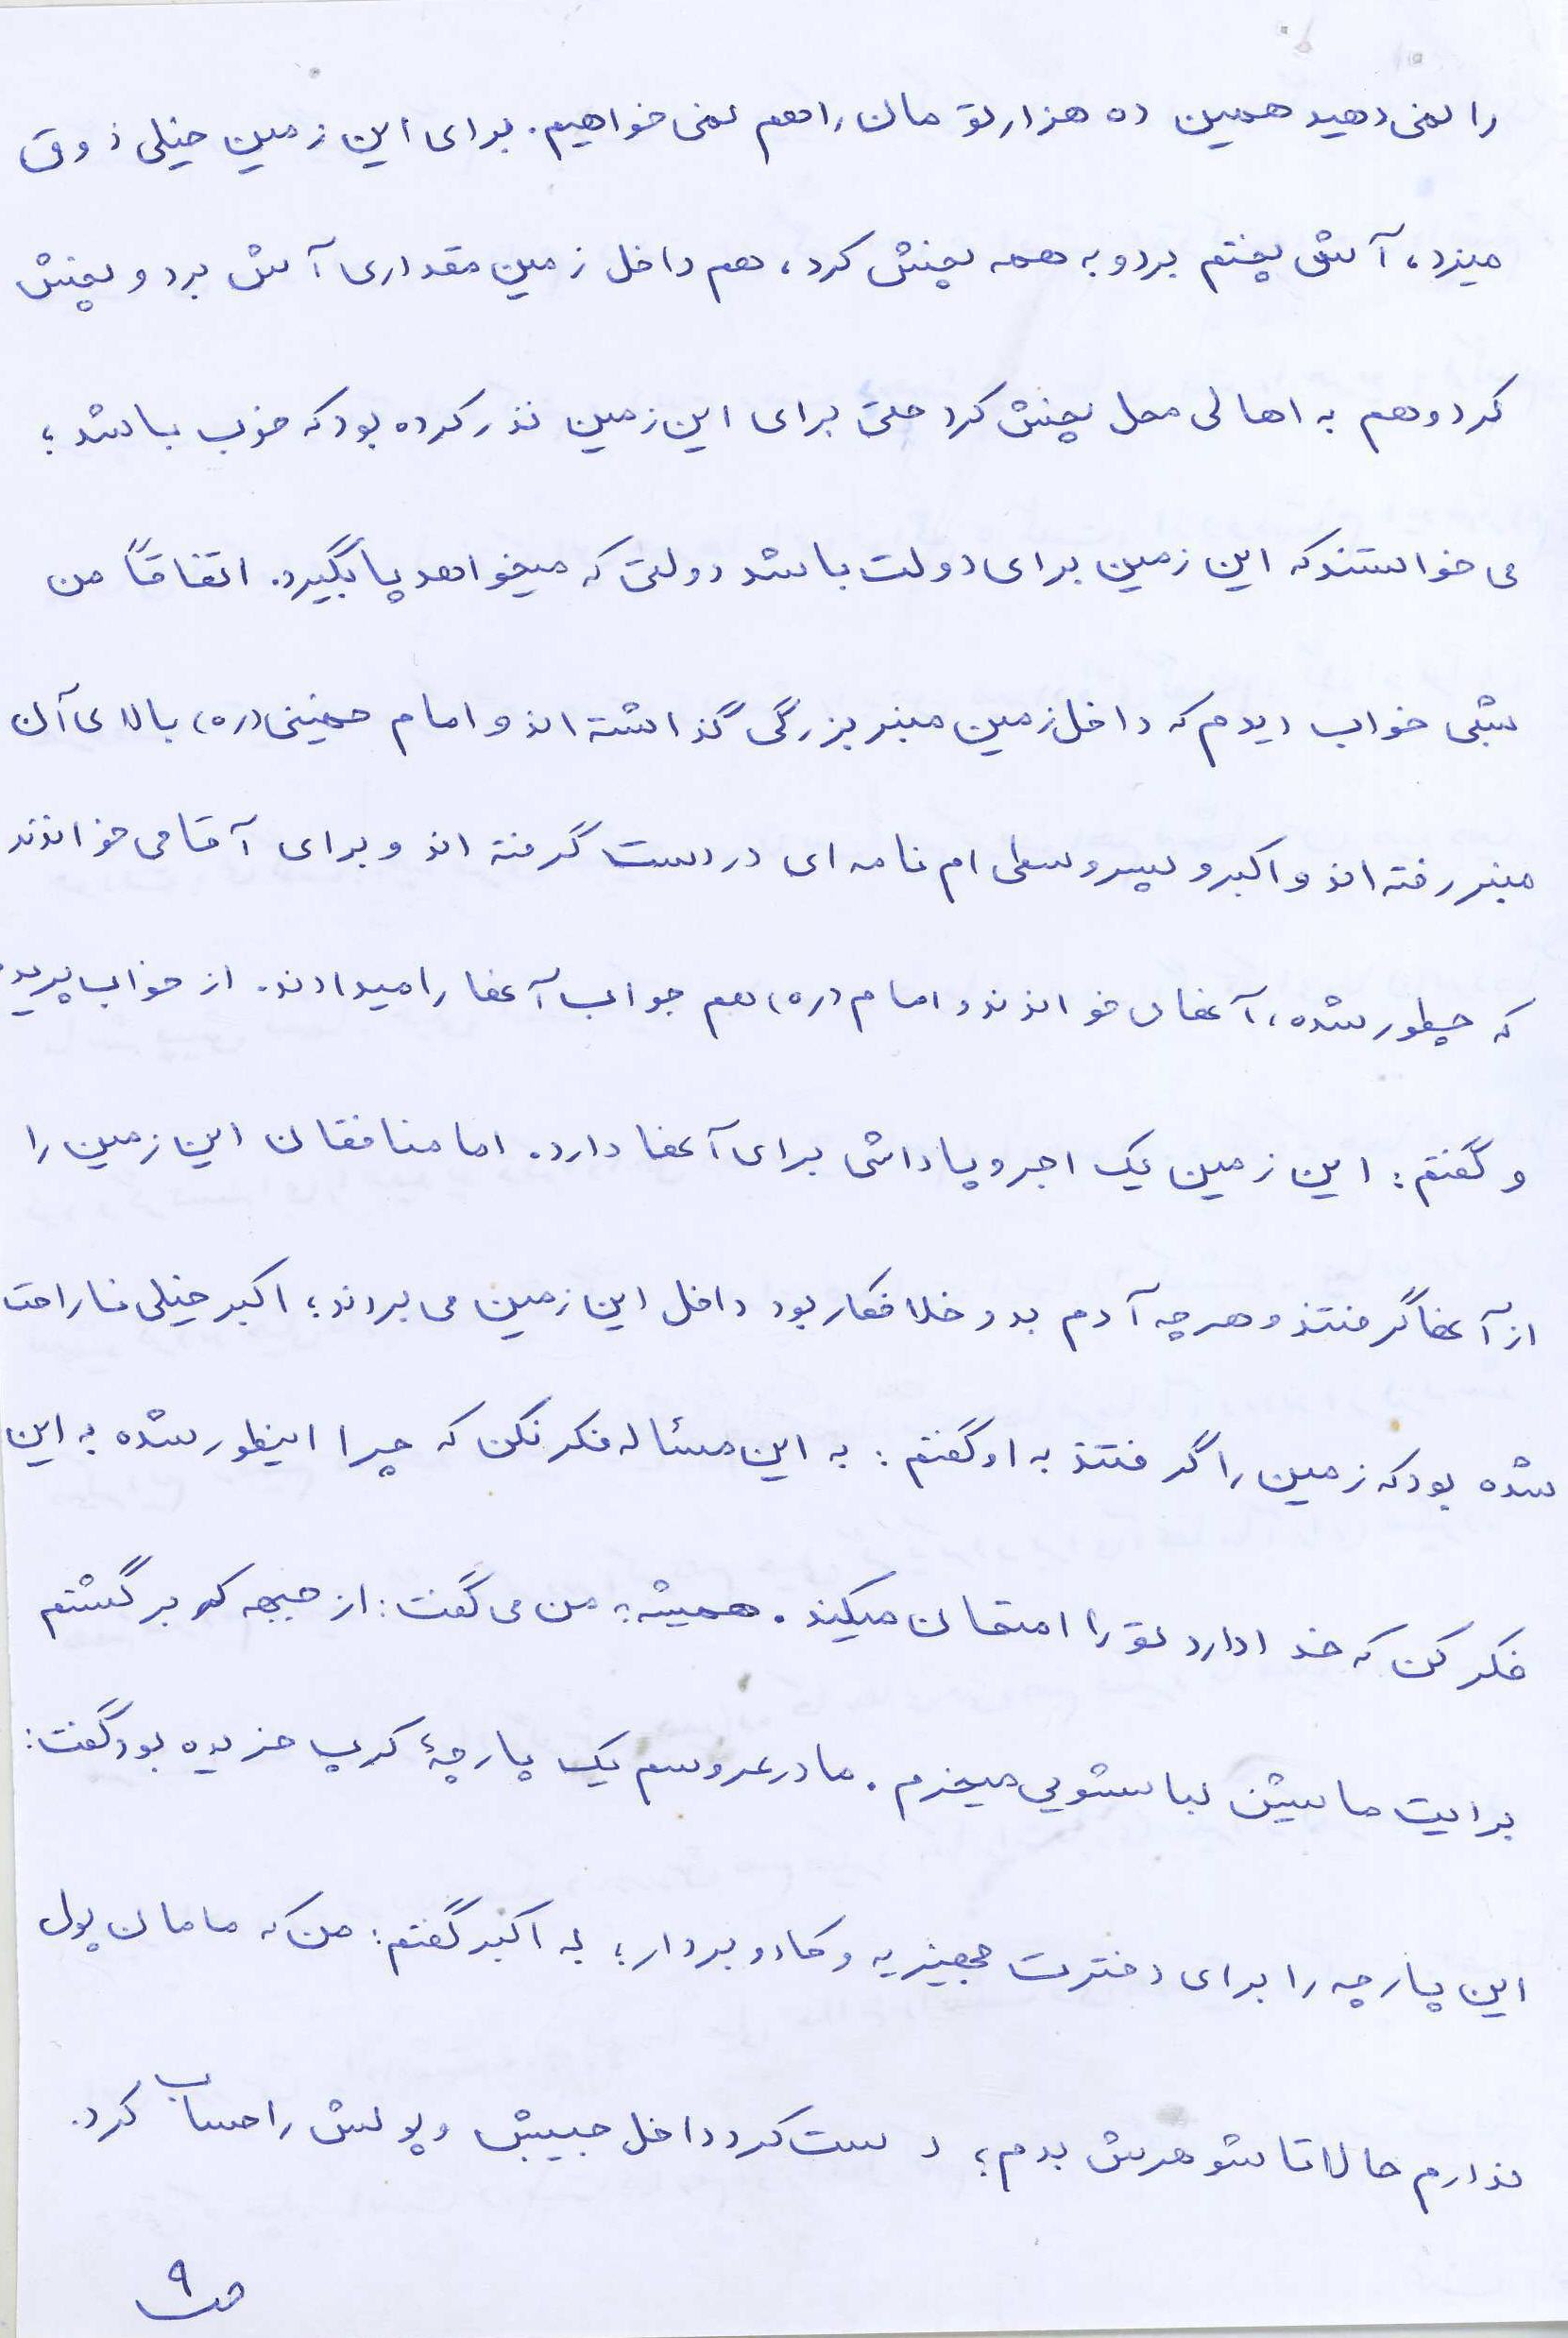 را نمی دهید همین ده هزار تو مان را هم نمی خواهیم. برای این زمین خیلی ذوق
میزد، آش پختم برد و به همه پخش کرد، هم داخل زمین مقداری آش برد و پخش
کرد و هم به اهالی محل پخش کرد حتی برای این زمین نذر کرده بود که خوب باشد؛
می خواستند که این زمین برای دولت باشد دولتی که میخواهد پا بگیرد. اتفاقاً من
شبی خواب دیدم که داخل زمین منبر بزرگی گذاشته اند و امام خمینی (ره) بالای آن
منبر رفته اند و اکبر و پسر وسطی ام نامه ای در دست گرفته اند و برای آقا می خوانند
که چطور شده، آنها می خواندند و امام (ره) هم جواب آنها را میدادند. از خواب پریدم
و گفتم: این زمین یک اجر و پاداشی برای آنها دارد. اما منافقان این زمین را
از آنها گرفتند و هر چه آدم بد و خلافکار بود داخل این زمین می بردند؛ اکبر خیلی ناراحت
شده بود که زمین را گرفتند به او گفتم: به این مسئاله فکر نکن که چرا اینطور شده به این
فکر کن که خدا دارد تو را امتحان میکند. همیشه به من می گفت: از جبهه که برگشتم
برایت ماشین لباسشویی میخرم. مادر عروسم یک پارچهٔ کرپ خریده بود گفت:
این پارچه را برای دخترت جهیزیه و کادو بردار؛ به اکبر گفتم: من که مامان پول
ندارم حالا تا شوهرش بدم؛ دست کرد داخل جیبش و پولش را حساب کرد.
ص ۹